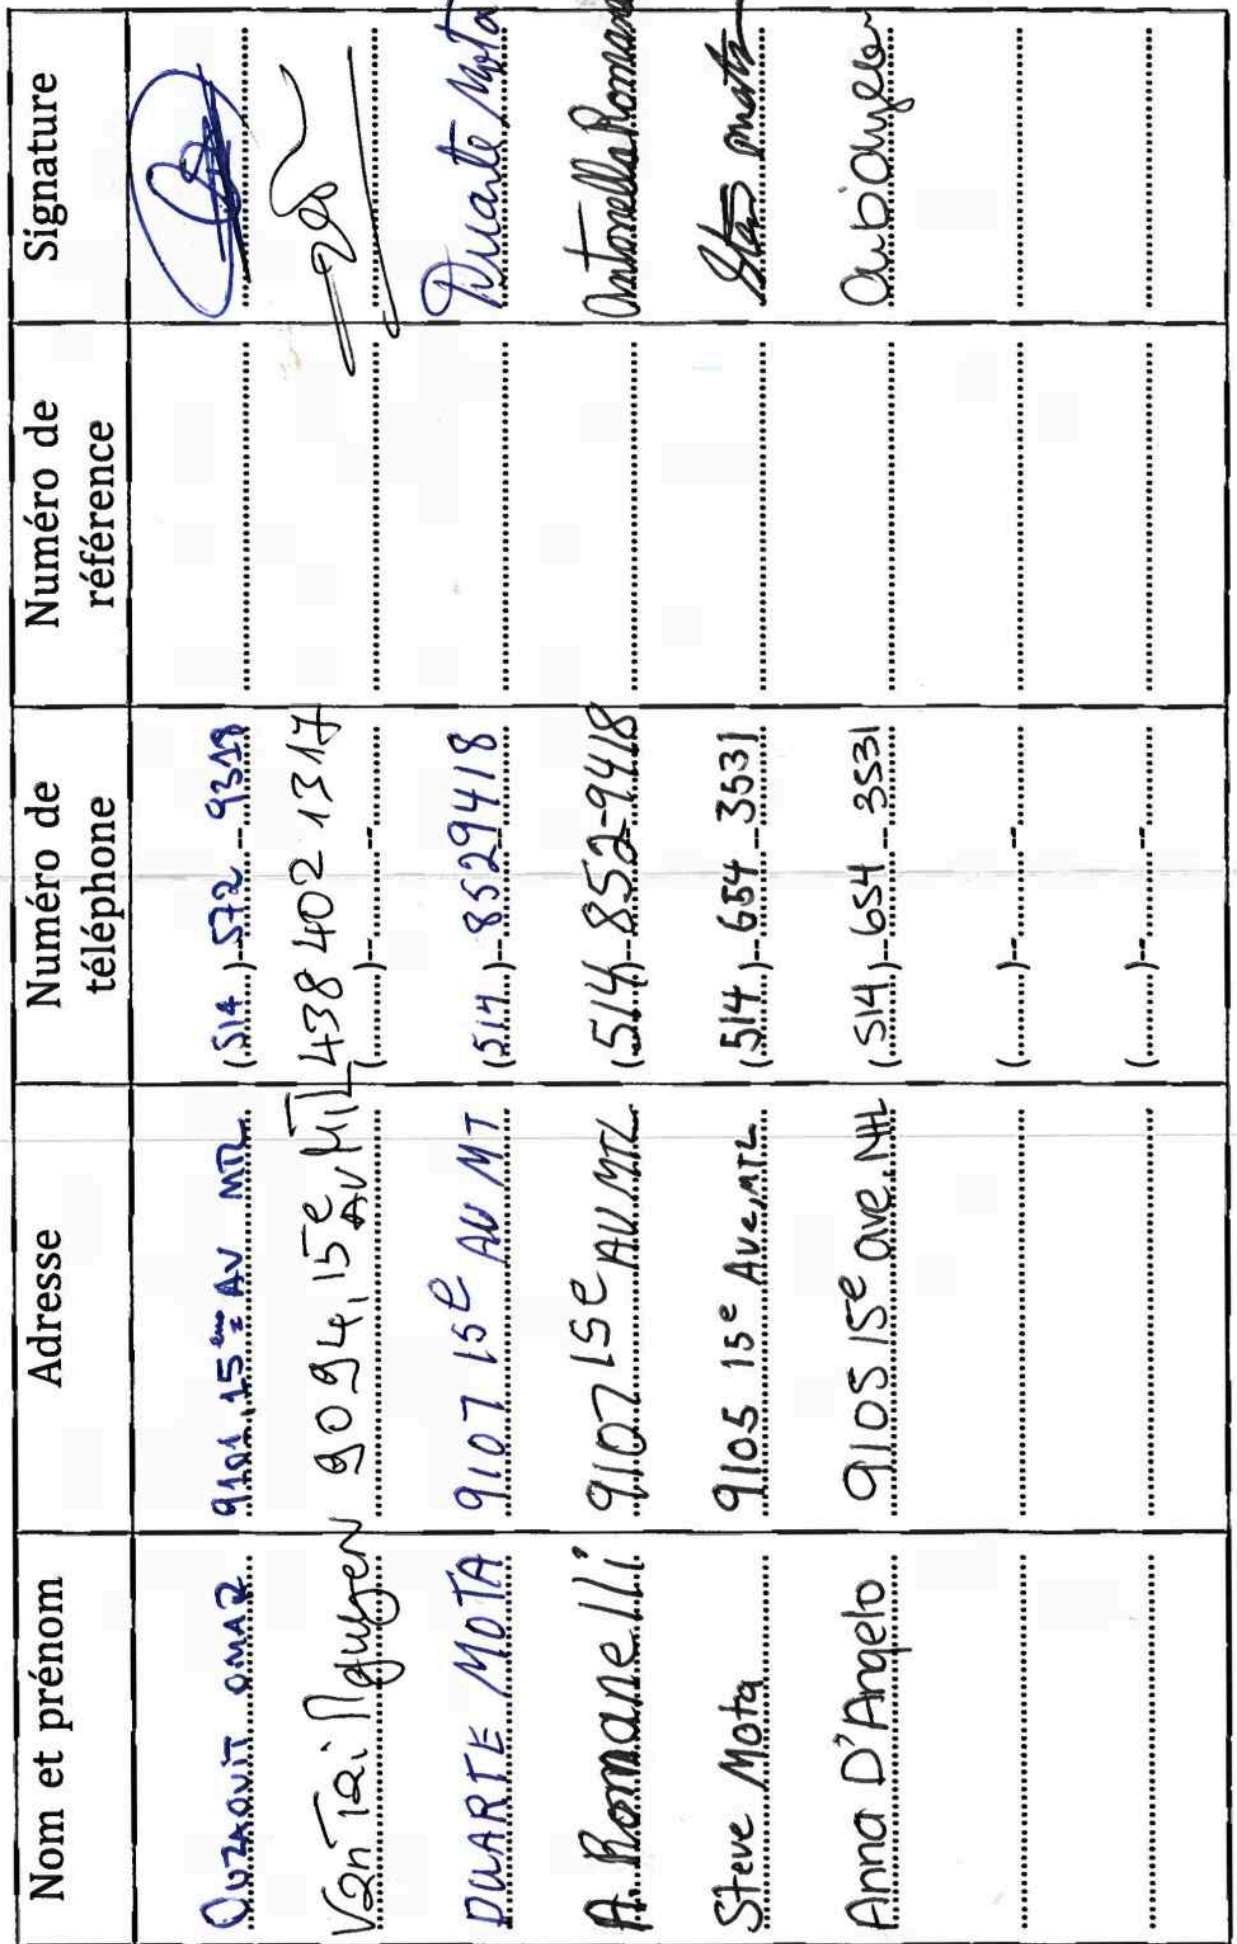 Nom et prénom Adresse Numéro de téléphone Numéro de référence Signature
OUZAOUIT OMAR 9101, 15ème AV MTL (514) 572-9318
Van Tai Nguyen 9094, 15e AV MTL 438 402 1317
DUARTE MOTA 9107 15e AV MT (514) 8529418 Duarte Mota
A. Romanelli 9107 15e AV MTL (514) 852-9418 Antonella Romane
Steve Mota 9105 15e Ave, MTL (514) 654-3531
Anna D'Angelo 9105 15e ave. Mtl (514) 654-3531